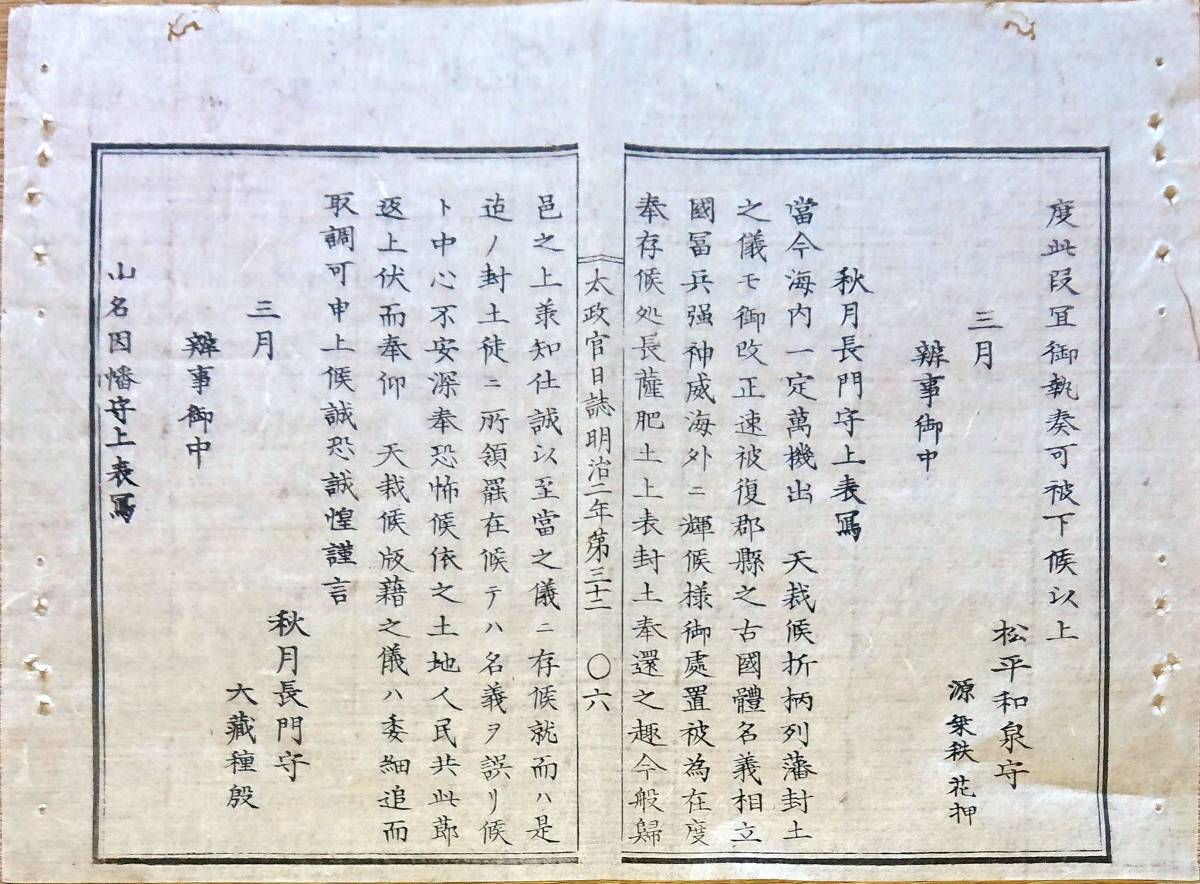 度此段宜御執奏可被下候以上
三月　松平和泉守
源乗秩花押
辨事御中
秋月長門守上表寫
當今海内一定萬機出　天裁候折柄列藩封土
之儀モ御改正速被復郡縣之古國體名義相立
國冨兵强神威海外ニ輝候様御處置被為在度
奉存候処長薩肥土上表封土奉還之趣今般歸
太政官日誌明治二年第三十二　〇六
邑之上承知仕誠以至當之儀ニ存候就而ハ是
迠ノ封土徒ニ所領罷在候テハ名義ヲ誤リ候
ト中心不安深奉恐怖候依之土地人民共此莭
返上伏而奉仰　天裁候版藉之儀ハ委細追而
取調可申上候誠恐誠惶謹言
三月　秋月長門守
大藏種殷
辨事御中
山名因幡守上表寫